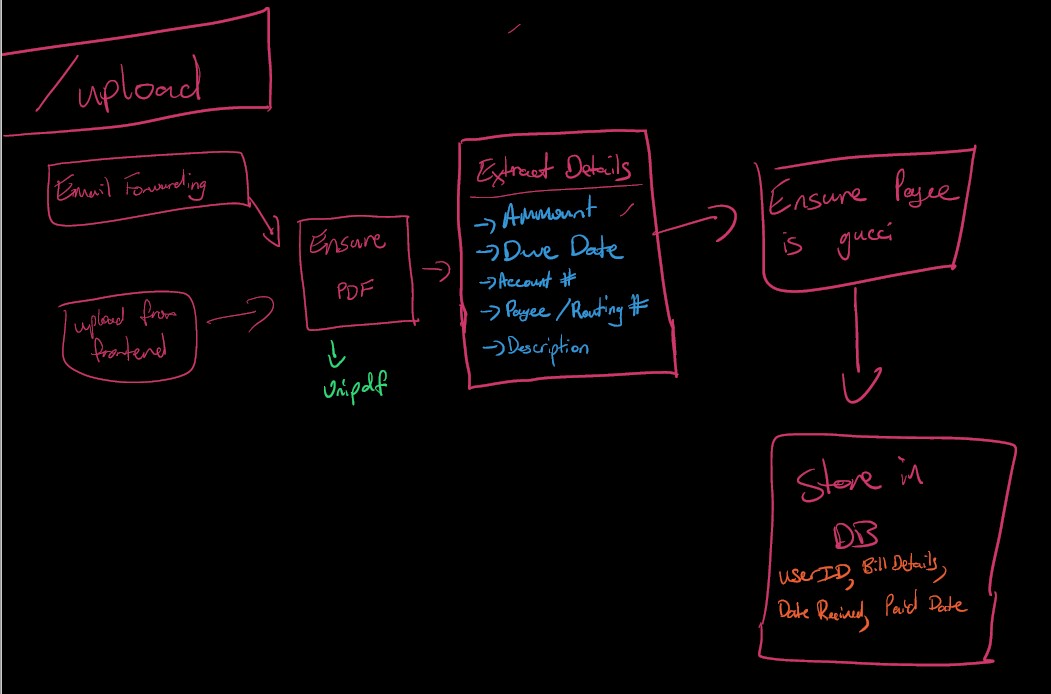 /upload
Email Forwarding
upload from
frontend
Ensure
PDF
Unipdf
Extract Details
→ Ammount
→ Due Date
→ Account #
→ Payee / Routing #
→ Description
Ensure Payee
is gucci
Store in
DB
userID, Bill Details,
Date Recieved, Paid Date